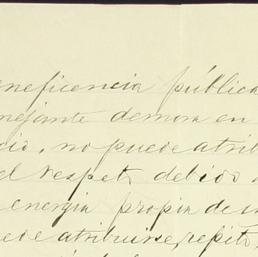 eneficencia pública
nejante demora en
dio, no puede atrib
el respeto debido
energia propia de
ede atribuirse, repito,